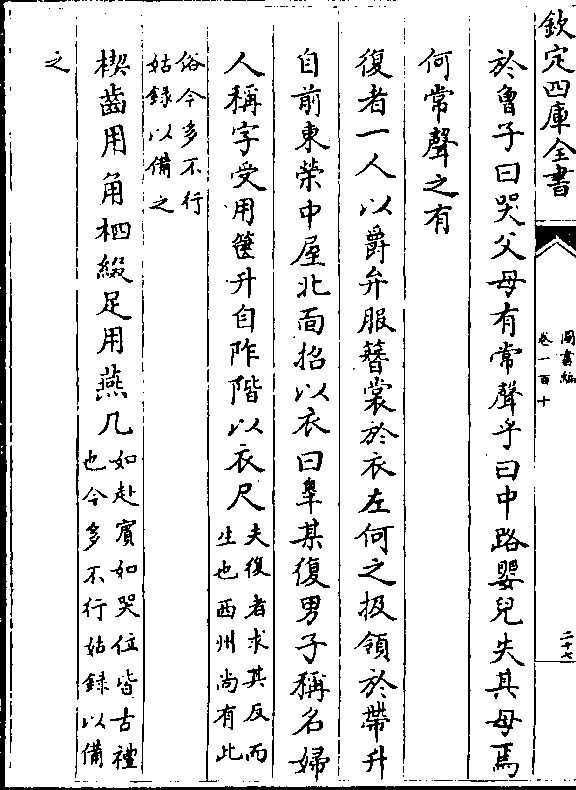 欽定四庫全書
圖書編
卷一百十
二十七
於曾子曰哭父母有常聲乎曰中路嬰兒失其母焉
何常聲之有
復者一人以爵弁服簪裳於衣左何之扱領於帶升
自前東榮中屋北面招以衣曰臯某復男子稱名婦
人稱字受用篋升自阼階以衣尺
夫復者求其反而
生也西州尚有此
俗今多不行
姑錄以備之
楔齒用角柶綴足用燕几
如赴賓如哭位皆古禮
也今多不行姑錄以備
之